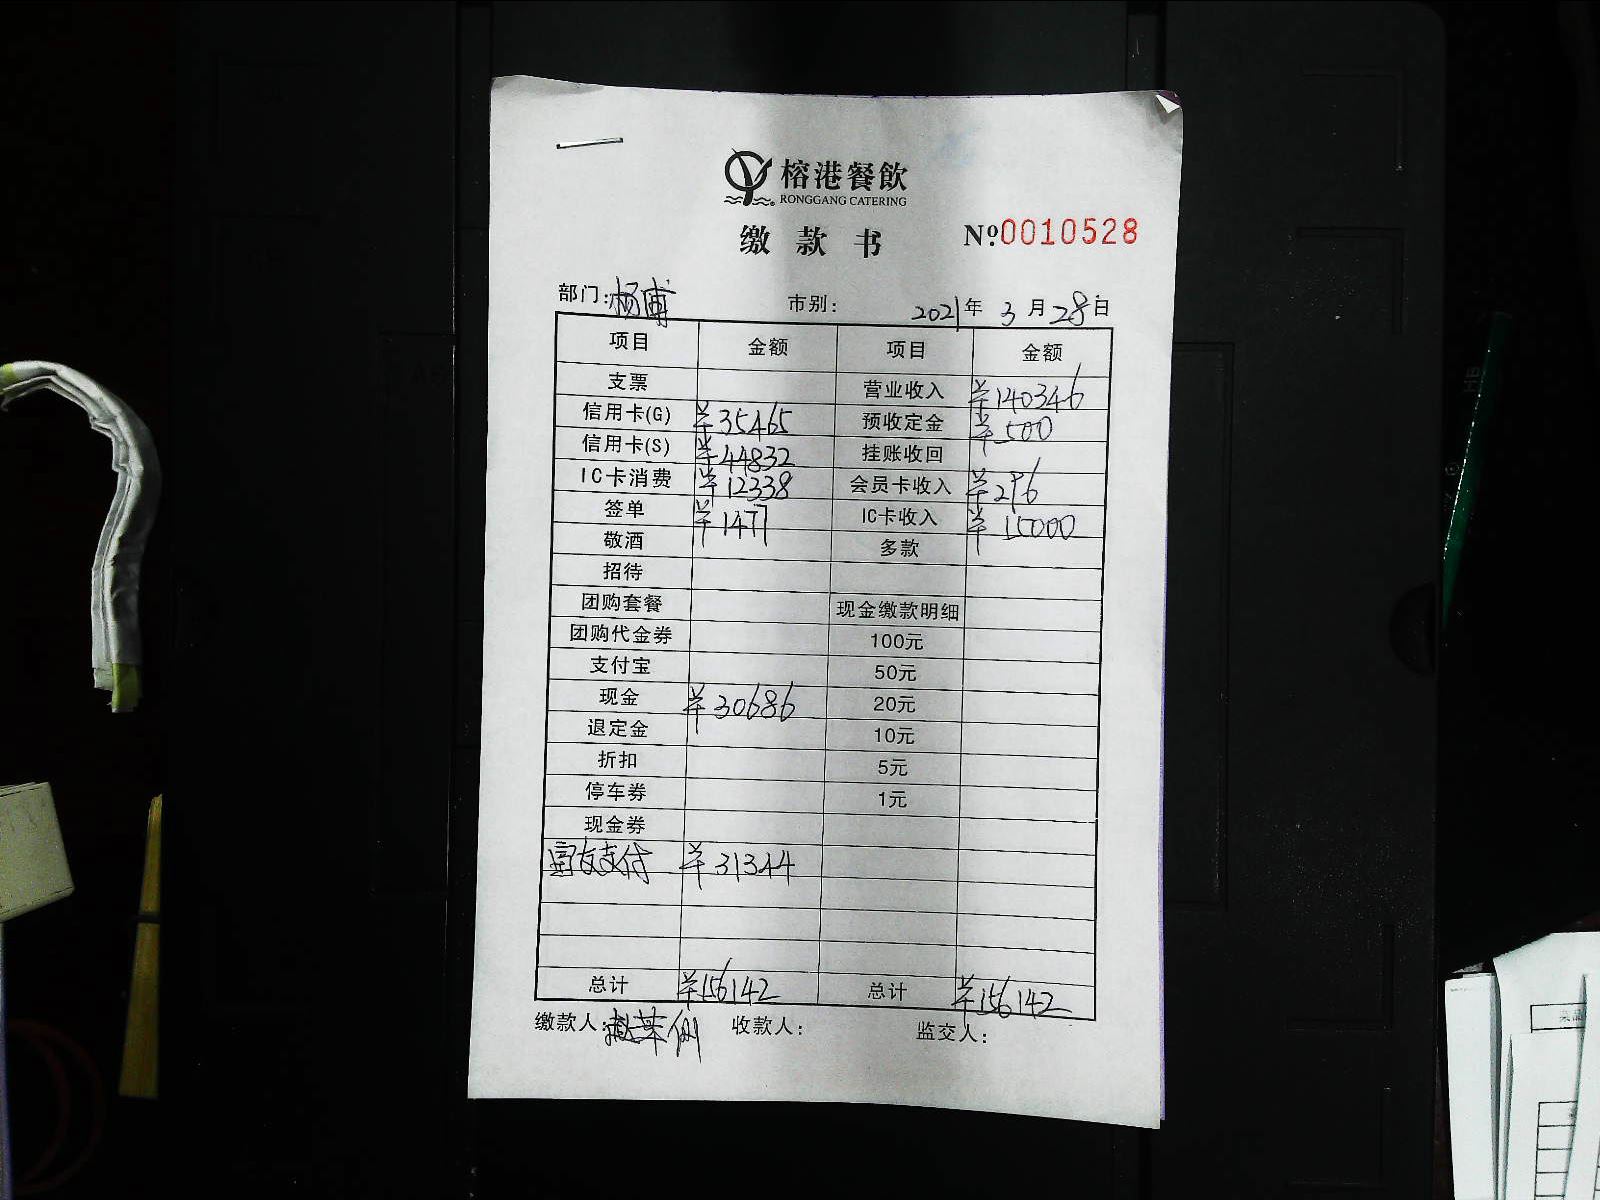 榕港餐飲
RONGGANG CATERING
缴款书 №0010528
部门:杨浦 市别: 2021年 3月28日
项目 金额 项目 金额
支票 营业收入 ¥140346
信用卡(G) ¥35465 预收定金 ¥500
信用卡(S) ¥44832 挂账收回
IC卡消费 ¥12338 会员卡收入 ¥296
签单 ¥1477 IC卡收入 ¥15000
敬酒 多款
招待
团购套餐 现金缴款明细
团购代金券 100元
支付宝 50元
现金 ¥30686 20元
退定金 10元
折扣 5元
停车券 1元
现金券
富友支付 ¥31344
总计 ¥156142 总计 ¥156142
缴款人: 收款人: 监交人: